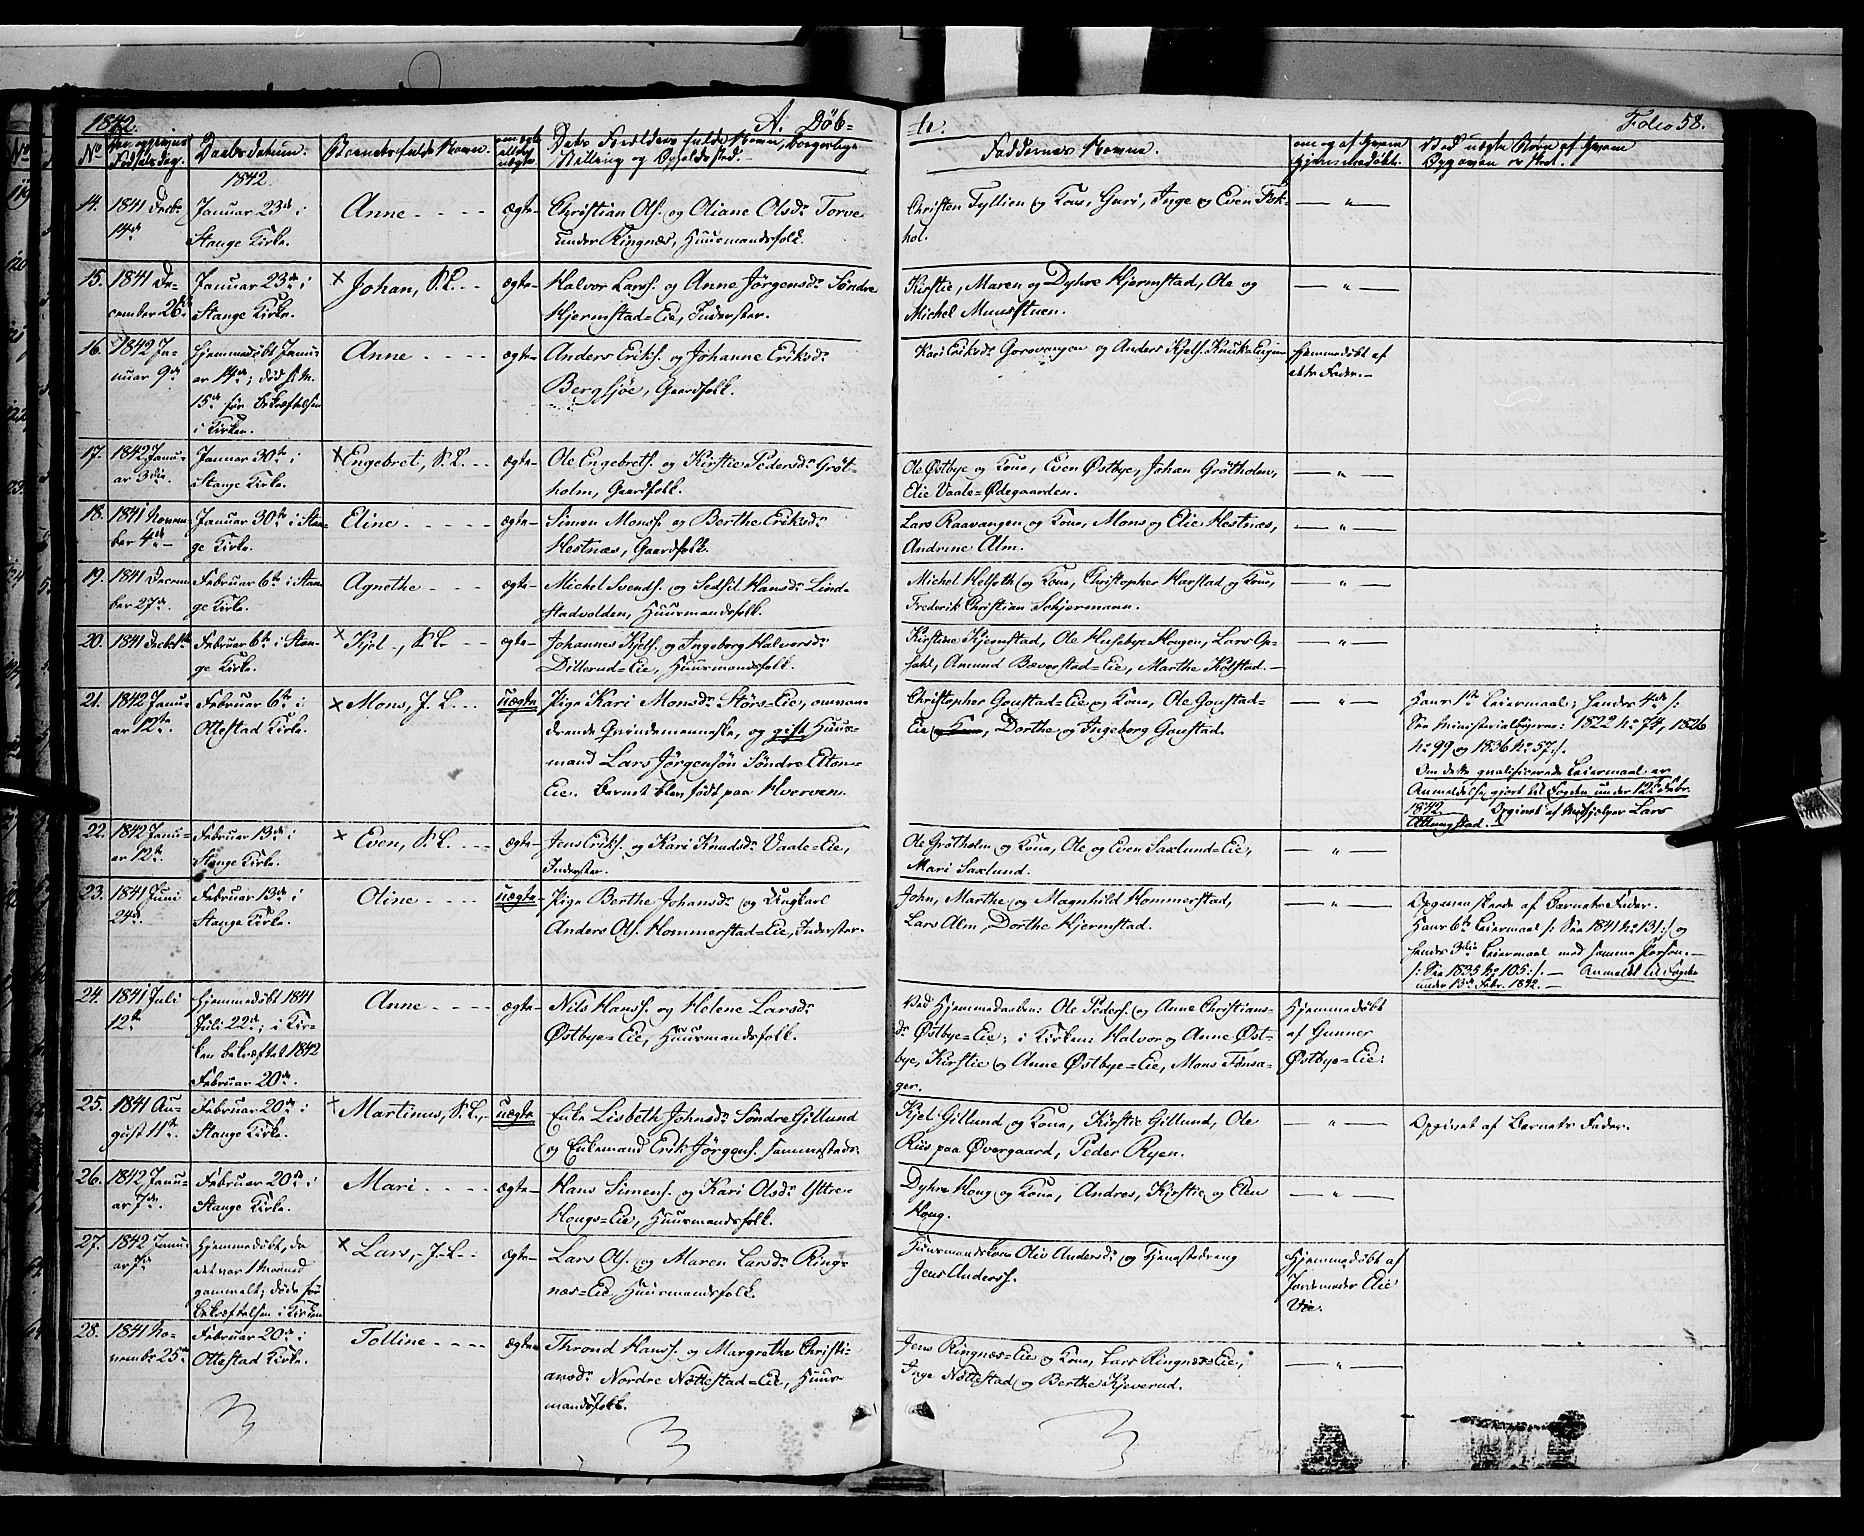 1842.
A. Døb-
te.
Folio 58.
No
Aar og
Fødselsdag.
Daabsdatum.
Barnets fulde Navn.
om ægte
eller
uægte
Dets Forældres fulde Navn, Borgerlige
Stilling og Opholdssted.
Faddernes Navne.
om og af Hvem
hjemmedøbt.
Ved uægte Børn af Hvem
Opgaven er skeet.
1842.
14. 1841 Decbr.
14de
Januar 23de i
Stange Kirke.
Anne - - - -
ægte-
Christian Ols. og Oliane Olsdr. Torve
under Ringnæs, Huusmandsfolk.
Christen Tyllien og Kone, Guri, Inge og Even Fok-
hol.
— „ —
15. 1841 De-
cember 26de
Januar 23de i
Stange Kirke.
× Johan, S. L. - -
ægte-
Halvor Larss. og Anne Jørgensdr. Søndre
Hjermstad=Eie, Inderster.
Kirstie, Maren og Dyhre Hjermstad, Ole og
Michel Muusstuen.
— „ —
16. 1842 Ja-
nuar 9de
Hjemmedøbt Janu-
ar 14de; død s. M.
15de før Bekræftelsen
i Kirken.
Anne - - - -
ægte-
Anders Eriks. og Johanne Eriksdr.
Bergsjøe, Gaardfolk.
Kari Eriksdr. Gorovangen og Anders Kjels. Knuk=Engen
Hjemmedøbt af
dets Fader.-
17. 1842 Janu-
ar 3die.
Januar 30te i
Stange Kirke.
× Engebret, S. L. - -
ægte-
Ole Engebrets. og Kirstie Pedersdr. Grøt-
holm, Gaardfolk.
Ole Østbye og Kone, Even Østbye, Johan Grøtholm,
Elie Vaale=Ødegaarden.
— „ —
18. 1841 Novem-
ber 4de -
Januar 30te i Stan-
ge Kirke.
Eline - - - - -
ægte-
Simen Monss. og Berthe Eriksdr.
Hestnæs, Gaardfolk.
Lars Raavangen og Kone, Mons og Elie Hestnæs,
Andrine Alm.
— „ —
19. 1841 Decem-
ber 27de.
Februar 6te i Stan-
ge Kirke.
Agnethe - - -
ægte-
Michel Svends. og Sedsel Hansdr. Lind-
stadvolden, Huusmandsfolk.
Michel Helseth og Kone, Christopher Harstad og Kone,
Frederik Christian Schjermann.
— „ —
20. 1841 Decbr.
Februar 6te i Stan-
ge Kirke.
× Kjel -, S. L. - -
ægte-
Johannes Kjels. og Ingeborg Halvorsdr.
Dillerud=Eie, Huusmandsfolk.
Kirstine Hjermstad, Ole Husebye Haugen, Lars Op-
sahl, Amund Bæverstad=Eie, Marthe Kolstad.-
— „ —
21. 1842 Janu-
ar 12te.
Februar 6te i
Ottestad Kirke.
× Mons, J. L. - -
uægte-
Pige Kari Monsdr. Størs=Eie, omvan-
drende Qvindemenneske, og gift Huus-
mand Lars Jørgensøn Søndre Elton=
Eie. Barnet blev født paa Hverven.
Christopher Gonstad=Eie og Kone, Ole Gonstad=
Eie og Kone, Dorthe og Ingeborg Gonstad.
— „ —
Hans 1ste Leiermaal; hendes 4de /:
See Ministerialbøgerne: 1822 No 74, 1826
No 99 og 1836 No 57 :/.
Om dette qualificerede Leiermaal er
Anmeldelse gjort til Fogden under 12te Febr.
1842. Opgivet af Medhjelper Lars
Attungstad.-
22. 1842 Janu-
ar 12te.
Februar 13de i
Stange Kirke.
× Even, S. L. - - -
ægte-
Jens Eriks. og Kari Knudsdr. Vaale=Eie,
Inderster.
Ole Grøtholm og Kone, Ole og Even Saxlund=Eie,
Mari Saxlund.
— „ —
23. 1841 Juni
24de.
Februar 13de i
Stange Kirke.
Oline - - - -
uægte-
Pige Berthe Johansdr. og Ungkarl
Anders Ols. Hommerstad=Eie, Inderster.
John, Marthe og Magnhild Hommerstad,
Lars Alm, Dorthe Hjermstad.
— „ —
Opgaven skeede af Barnets Fader.
Hans 6te Leiermaal /: See 1841 No 131 :/ og
hendes 3die Leiermaal med samme Person.-
/: See 1835 No 105 :/. — Anmeldt til Fogden
under 13de Febr. 1842.-
24. 1841 Juli
12te
Hjemmedøbt 1841
Juli 22de; i Kir-
ken bekræftet 1842
Februar 20de.
Anne - - - -
ægte-
Nils Hanss. og Helene Larsdr.
Østbye=Eie, Huusmandsfolk.
Ved Hjemmedaaben: Ole Peders. og Anne Christians-
dr. Østbye=Eie; i Kirken: Halvor og Anne Øst-
bye, Kirstie og Anne Østbye=Eie, Mons Fonsa-
ger.
Hjemmedøbt
af Gunner
Østbye=Eie.
25. 1841 Au-
gust 11te.
Februar 20de i
Stange Kirke.
× Martinus, S. L.,-
uægte
Enke Lisbeth Johnsdr. Søndre Gillund
og Enkemand Erik Jørgens. sammesteds.
Kjel Gillund og Kone, Kirstie Gillund, Ole
Riis paa Øvergaard, Peder Ryen.
— „ —
Opgivet af Barnets Fader.
26. 1842 Janu-
ar 7de.
Februar 20de i
Stange Kirke.
Mari - - - -
ægte-
Hans Simens. og Kari Olsdr. Yttre-
Hougs=Eie, Huusmandsfolk.
Dyhre Houg og Kone, Andres, Kirstie og Elen
Houg.
— „ —
27. 1842 Janu-
ar 7de
Hjemmedøbt, da
det var 1 Maaned
gammelt; døde før
Bekræftelsen i Kirken
× Lars, - J. L. - -
ægte-
Lars Ols. og Maren Larsdr. Ring-
næs=Eie, Huusmandsfolk.
Huusmandskone Oliv Andersdr. og Tjenestedreng
Jens Anderss.
Hjemmedøbt af
Jordemoder Elie
Vie.
28. 1841 No-
vember 25de
Februar 20de i
Ottestad Kirke.
Tolline - - - -
ægte
Thrond Hanss. og Margrethe Christi-
ansdr. Nordre Nøttestad=Eie, Huus-
mandsfolk.
Jens Ringnæs=Eie og Kone, Lars Ringnæs=Eie,
Inge Nøttestad og Berthe Kjeverud.
— „ —